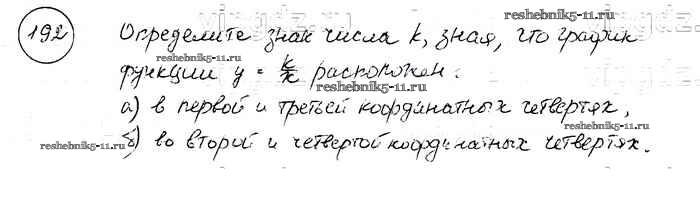 192 Определите знак числа k, зная, что график
функции y = k/x расположен:
а) в первой и третьей координатных четвертях,
б) во второй и четвертой координатных четвертях.
reshebnik5-11.ru
reshebnik5-11.ru
reshebnik5-11.ru
reshebnik5-11.ru
reshebnik5-11.ru